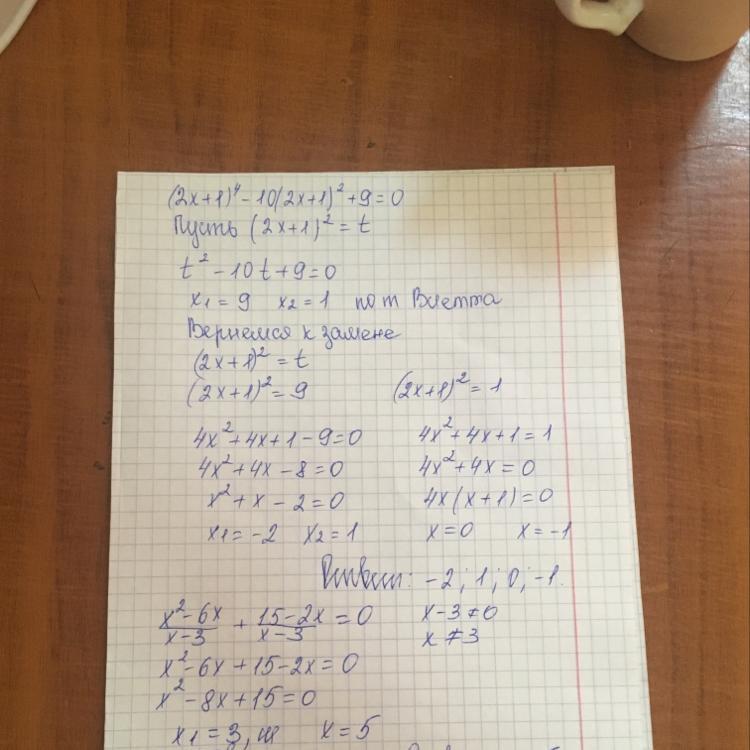 (2x+1)⁴ - 10(2x+1)² + 9 = 0
Пусть (2x+1)² = t
t² - 10t + 9 = 0
x₁ = 9 x₂ = 1 по т Виетта
Вернемся к замене
(2x+1)² = t
(2x+1)² = 9 (2x+1)² = 1
4x² + 4x + 1 - 9 = 0 4x² + 4x + 1 = 1
4x² + 4x - 8 = 0 4x² + 4x = 0
x² + x - 2 = 0 4x(x+1) = 0
x₁ = -2 x₂ = 1 x = 0 x = -1
Ответ: -2; 1; 0; -1.
(x² - 6x)/(x-3) + (15-2x)/(x-3) = 0 x-3≠0
x≠3
x² - 6x + 15 - 2x = 0
x² - 8x + 15 = 0
x₁ = 3, x = 5